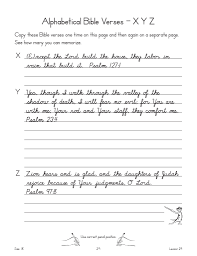 Alphabetical Bible Verses - X Y Z
Copy these Bible verses one time on this page and then again on a separate page.
See how many you can memorize.
X (E)xcept the Lord build the house, they labor in
vain that build it. Psalm 127:1
Y Yea, though I walk through the valley of the
shadow of death, I will fear no evil: for You are
with me; Your rod and Your staff, they comfort me.
Psalm 23:4
Z Zion hears and is glad, and the daughters of Judah
rejoice because of Your judgments, O Lord.
Psalm 97:8
Use correct pencil position.
Lesson 29